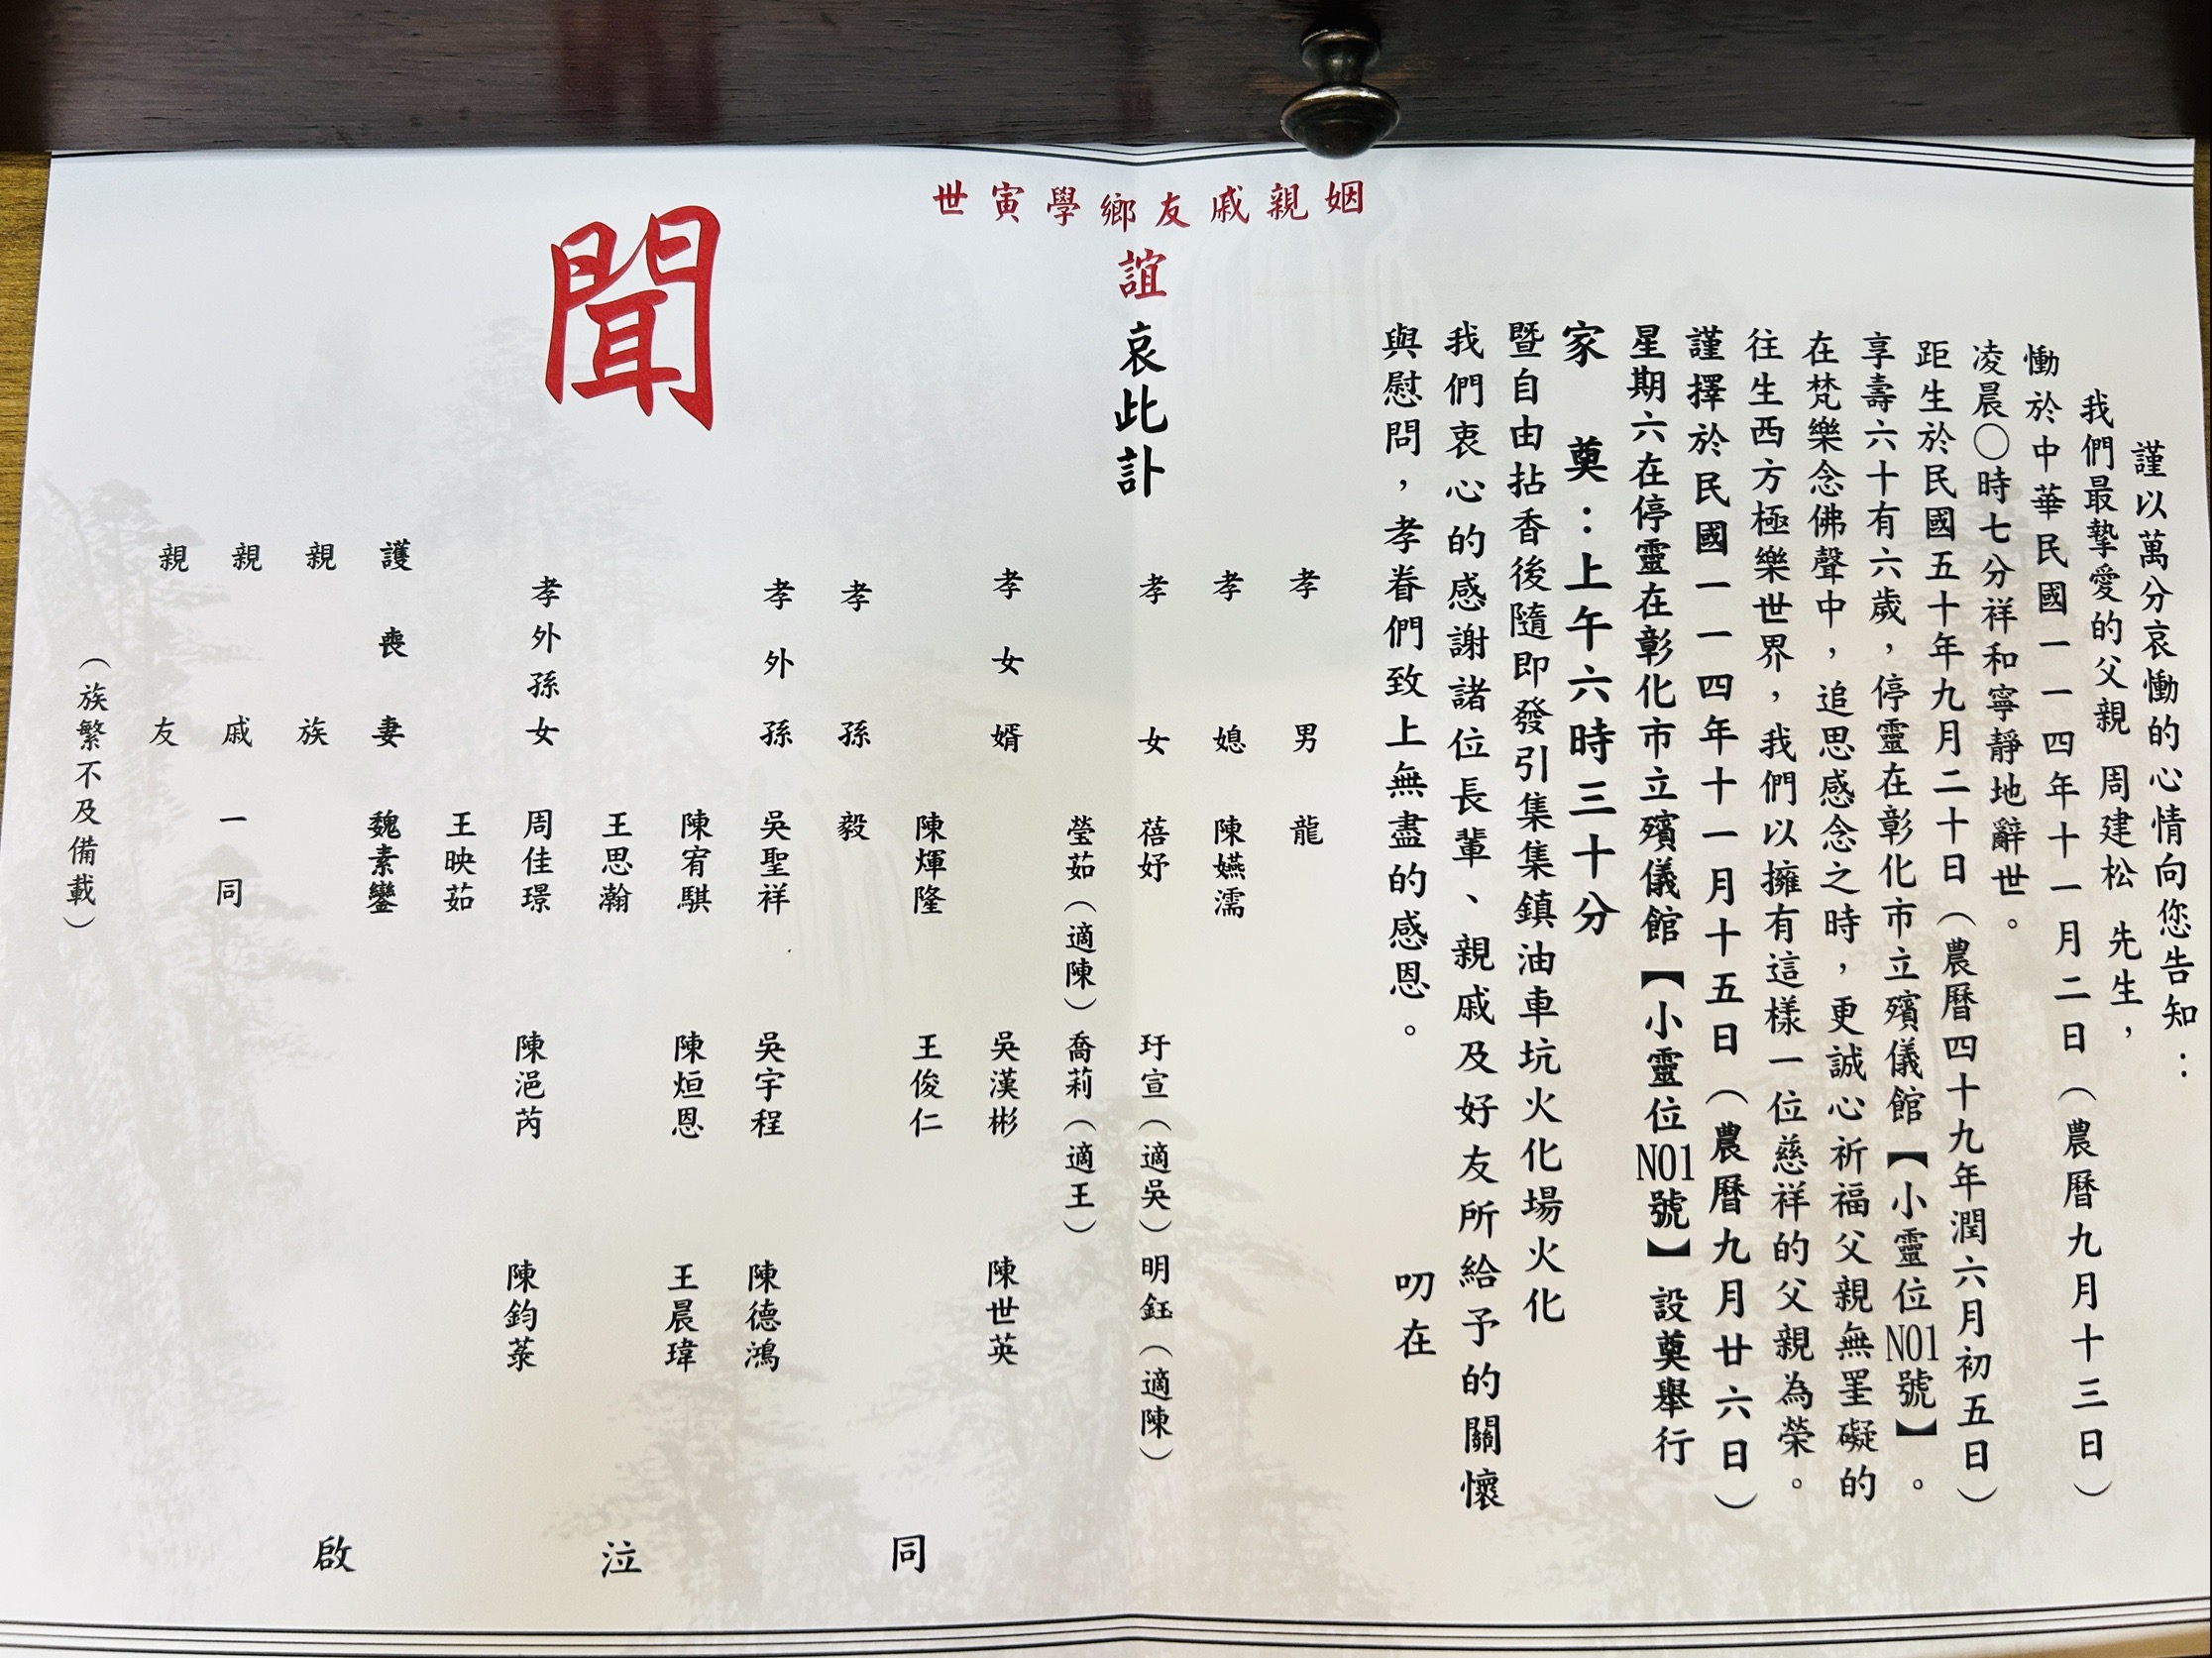 謹以萬分哀慟的心情向您告知：
我們最摯愛的父親 周建松 先生，
慟於中華民國一一四年十一月二日（農曆九月十三日）
凌晨〇時七分祥和寧靜地辭世。
距生於民國五十年九月二十日（農曆四十九年潤六月初五日）
享壽六十有六歲，停靈在彰化市立殯儀館【小靈位N01號】。
在梵樂念佛聲中，追思感念之時，更誠心祈福父親無罣礙的
往生西方極樂世界，我們以擁有這樣一位慈祥的父親為榮。
謹擇於民國一一四年十一月十五日（農曆九月廿六日）
星期六在停靈在彰化市立殯儀館【小靈位N01號】設奠舉行
家 奠：上午六時三十分
暨自由拈香後隨即發引集集鎮油車坑火化場火化
我們衷心的感謝諸位長輩、親戚及好友所給予的關懷
與慰問，孝眷們致上無盡的感恩。 叨在
姻親戚友鄉學寅世
誼 哀此訃
聞
孝男 龍
孝媳 陳嬿濡
孝女 蓓妤 玗宣（適吳） 明鈺（適陳）
瑩茹（適陳） 喬莉（適王）
孝女婿 吳漢彬 陳世英
陳煇隆 王俊仁
孝孫 毅
孝外孫 吳聖祥 吳宇程 陳德鴻
陳宥騏 陳烜恩 王晨瑋
王思瀚
孝外孫女 周佳璟 陳浥芮 陳鈞蒃
王映茹
護喪妻 魏素鑾
親族
親戚 一同
親友
（族繁不及備載）
同泣啟